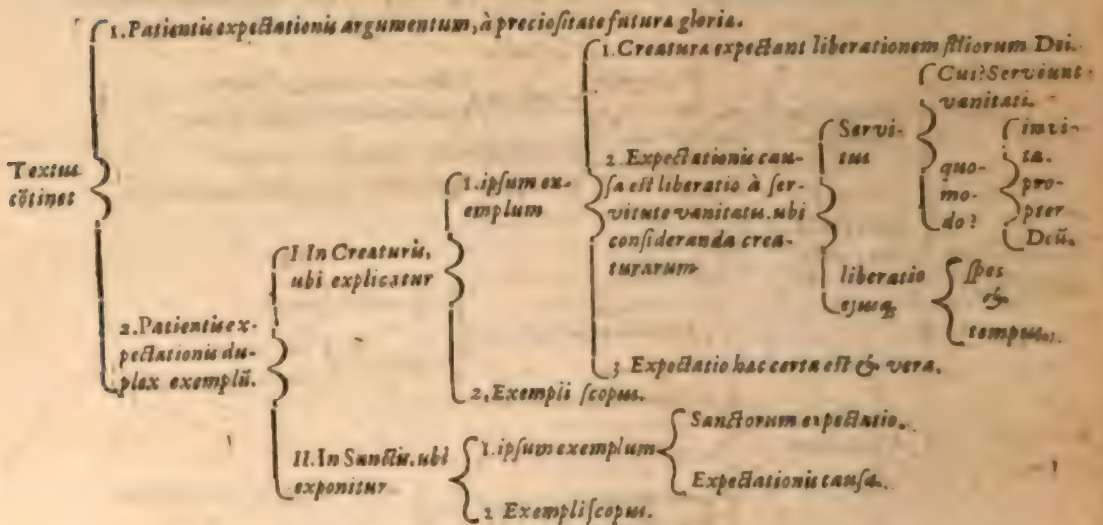 1. Patientis expectationis argumentum, à preciositate futura gloria.
Textus
cõtinet
2. Patientis ex-
pectationis du-
plex exemplũ.
I. In Creaturis,
ubi explicatur
1. ipsum ex-
emplum
1. Creatura expectant liberationem filiorum Dei.
2. Expectationis cau-
sa est liberatio à ser-
vitute vanitatis. ubi
consideranda crea-
turarum
Servi-
tus
Cui? Serviunt
vanitati.
quo-
mo-
do?
invi-
ta.
pro-
pter
Deũ.
liberatio
ejusq;
spes
&
tempus.
3 Expectatio hac certa est & vera.
2. Exempli scopus.
II. In Sanctis. ubi
exponitur
1. ipsum exemplum
Sanctorum expectatio.
Expectationis causa.
2 Exempli scopus.